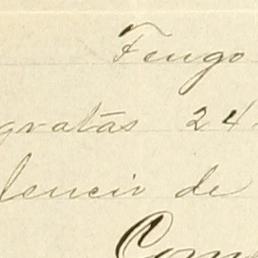 Tengo
gratas 24
lencia de
Com